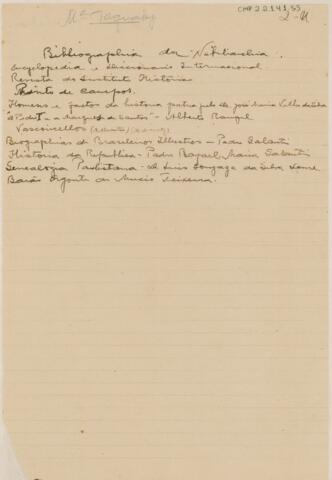 CMP 2.2.1.4.1.53
2-M
Bibliographia da Nobliachia.
Encyclopedia e Diccionario Internacional
Revista do Instituto Historico
Pinto de Campos.
Homens e factos da historia patria pelo dr. José Maria
"D Pedro I e a Marqueza de Santos" - Alberto Rangel
Vasconcellos
Biographias de Brasileiros Illustres - Padre Galanti
Historia da Republica - Padre Raphael Maria Galanti
Genealogia Paulistana - de Luis Gonzaga da Silva Leme
Barão Ergonte de Mucio Teixeira.